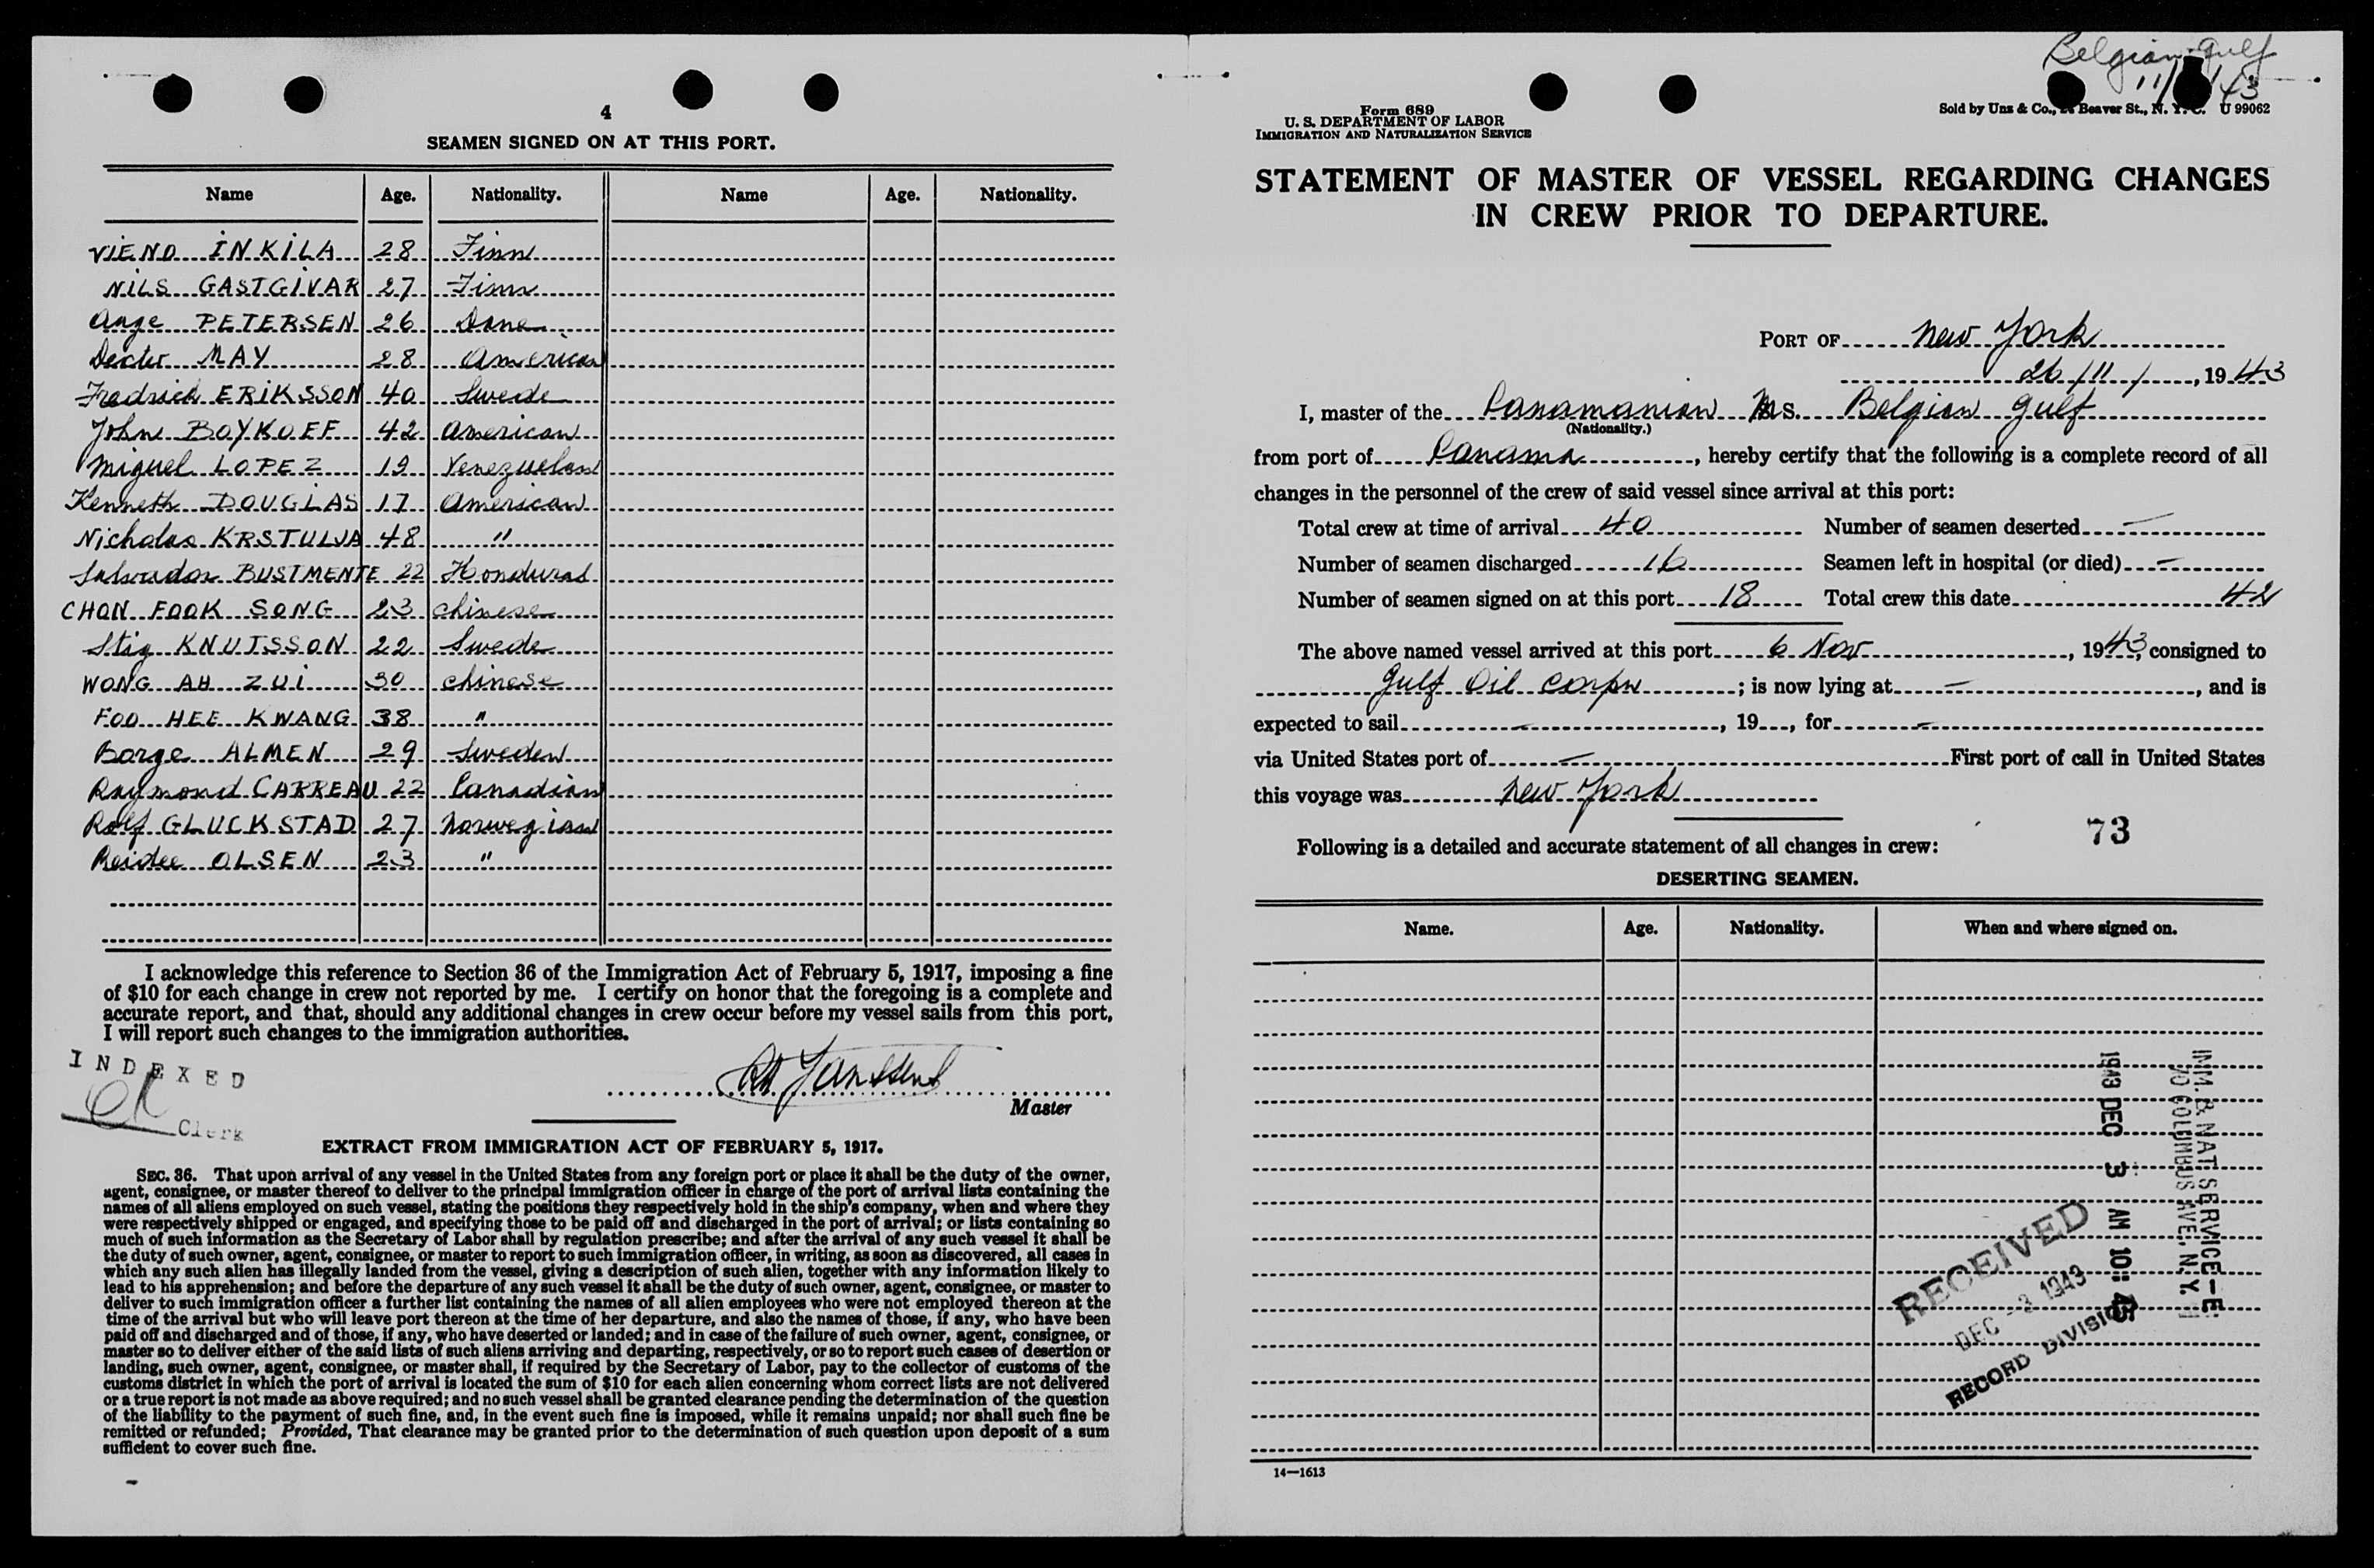 4
SEAMEN SIGNED ON AT THIS PORT.
Name Age. Nationality. Name Age. Nationality.
VIENO INKILA 28 Finn
NILS GASTGIVAR 27 Finn
Aage PETERSEN 26 Dane
Decter MAY 28 American
Fredrick ERIKSSON 40 Swede
John BOYKOFF 42 American
Miguel LOPEZ 19 Venezuelan
Kenneth DOUGLAS 17 American
Nicholas KRSTULJA 48 "
Salvador BUSTMENTE 22 Honduras
CHON FOOK SONG 23 Chinese
Stig KNUTSSON 22 Swede
WONG AH ZUI 30 Chinese
FOO HEE KWANG 38 "
Borge ALMEN 29 Sweden
Raymond CARREAU 22 Canadian
Rolf GLUCKSTAD 27 Norwegian
Reidee OLSEN 23 "
I acknowledge this reference to Section 36 of the Immigration Act of February 5, 1917, imposing a fine
of $10 for each change in crew not reported by me. I certify on honor that the foregoing is a complete and
accurate report, and that, should any additional changes in crew occur before my vessel sails from this port,
I will report such changes to the immigration authorities.
INDEXED
Clerk
Janssens
Master
EXTRACT FROM IMMIGRATION ACT OF FEBRUARY 5, 1917.
SEC. 36. That upon arrival of any vessel in the United States from any foreign port or place it shall be the duty of the owner,
agent, consignee, or master thereof to deliver to the principal immigration officer in charge of the port of arrival lists containing the
names of all aliens employed on such vessel, stating the positions they respectively hold in the ship's company, when and where they
were respectively shipped or engaged, and specifying those to be paid off and discharged in the port of arrival; or lists containing so
much of such information as the Secretary of Labor shall by regulation prescribe; and after the arrival of any such vessel it shall be
the duty of such owner, agent, consignee, or master to report to such immigration officer, in writing, as soon as discovered, all cases in
which any such alien has illegally landed from the vessel, giving a description of such alien, together with any information likely to
lead to his apprehension; and before the departure of any such vessel it shall be the duty of such owner, agent, consignee, or master to
deliver to such immigration officer a further list containing the names of all alien employees who were not employed thereon at the
time of the arrival but who will leave port thereon at the time of her departure, and also the names of those, if any, who have been
paid off and discharged and of those, if any, who have deserted or landed; and in case of the failure of such owner, agent, consignee, or
master so to deliver either of the said lists of such aliens arriving and departing, respectively, or so to report such cases of desertion or
landing, such owner, agent, consignee, or master shall, if required by the Secretary of Labor, pay to the collector of customs of the
customs district in which the port of arrival is located the sum of $10 for each alien concerning whom correct lists are not delivered
or a true report is not made as above required; and no such vessel shall be granted clearance pending the determination of the question
of the liability to the payment of such fine, and, in the event such fine is imposed, while it remains unpaid; nor shall such fine be
remitted or refunded; Provided, That clearance may be granted prior to the determination of such question upon deposit of a sum
sufficient to cover such fine.
Belgian Gulf
Form 689
U. S. DEPARTMENT OF LABOR
IMMIGRATION AND NATURALIZATION SERVICE
Sold by Unz & Co., Beaver St., N. Y. C. U 99062
STATEMENT OF MASTER OF VESSEL REGARDING CHANGES
IN CREW PRIOR TO DEPARTURE.
PORT OF New York
26/11/, 1943
I, master of the Panamanian Ms. Belgian Gulf
(Nationality.)
from port of Panama, hereby certify that the following is a complete record of all
changes in the personnel of the crew of said vessel since arrival at this port:
Total crew at time of arrival 40 Number of seamen deserted —
Number of seamen discharged 16 Seamen left in hospital (or died) —
Number of seamen signed on at this port 18 Total crew this date 42
The above named vessel arrived at this port 6 Nov, 1943, consigned to
Gulf Oil Corpn; is now lying at —, and is
expected to sail —, 19, for —
via United States port of — First port of call in United States
this voyage was New York
73
Following is a detailed and accurate statement of all changes in crew:
DESERTING SEAMEN.
Name. Age. Nationality. When and where signed on.
IMM. & NAT. SERVICE-E
70 COLUMBUS AVE. N.Y.
1943 DEC 3 AM 10: 45
RECEIVED
DEC -3 1943
RECORD DIVISION
14—1613